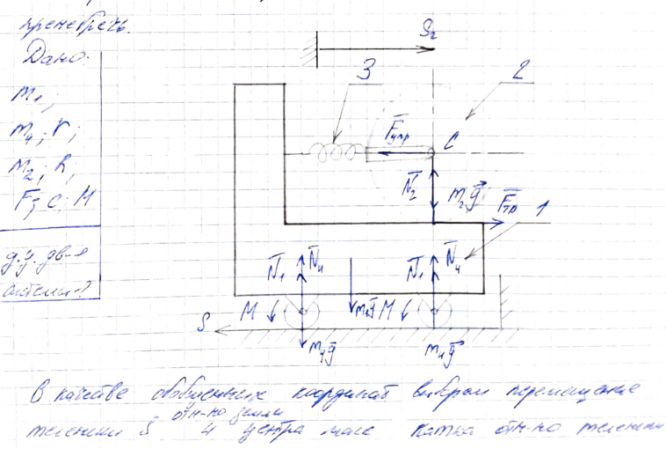 пренебречь.
Дано:
m₁;
m₄; r;
m₂; R,
F; c; M
д.у. дв-я
системы-?
S₂
3
2
F̅упр
C
N̅₂
m₂g̅
F̅тр
1
N̅₁ N̅₄
N̅₁ N̅₄
M
M
S
m₄g̅
m₄g̅
В качестве обобщенных координат выбрем перемещение
отн-но земли
тележки S и центра масс катка отн-но тележки